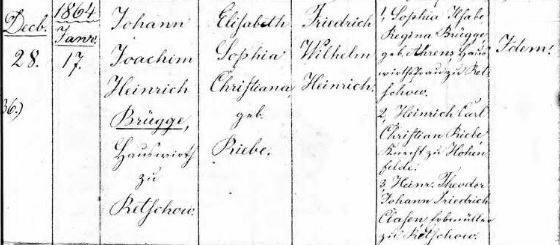 Decb.
28.
36.)
1864
Janr.
17.
Johann
Joachim
Heinrich
Brügge,
Hauswirth
zu
Retschow.
Elisabeth
Sophia
Christiana,
geb.
Riebe.
Friedrich
Wilhelm
Heinrich.
1, Sophia Ilsabe
Regina Brügge,
geb. Ahrens, Haus
wirthsfrau zu Ret-
schow.
2, Heinrich Carl
Christian Riebe
Knecht zu Hohen
felde.
3, Heinr. Theodor
Johann Friedrich
Clasen, Erbmüller
zu Retschow.
Idem.